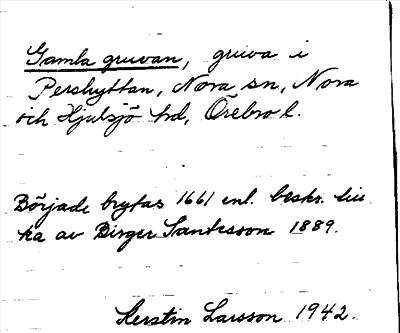 Gamla gruvan, gruva i
Pershyttan, Nora sn, Nora
och Hjulsjö hd, Örebro l.
Började brytas 1661 enl. beskr.
ka av Birger Santesson 1889.
Kerstin Larsson 1942.